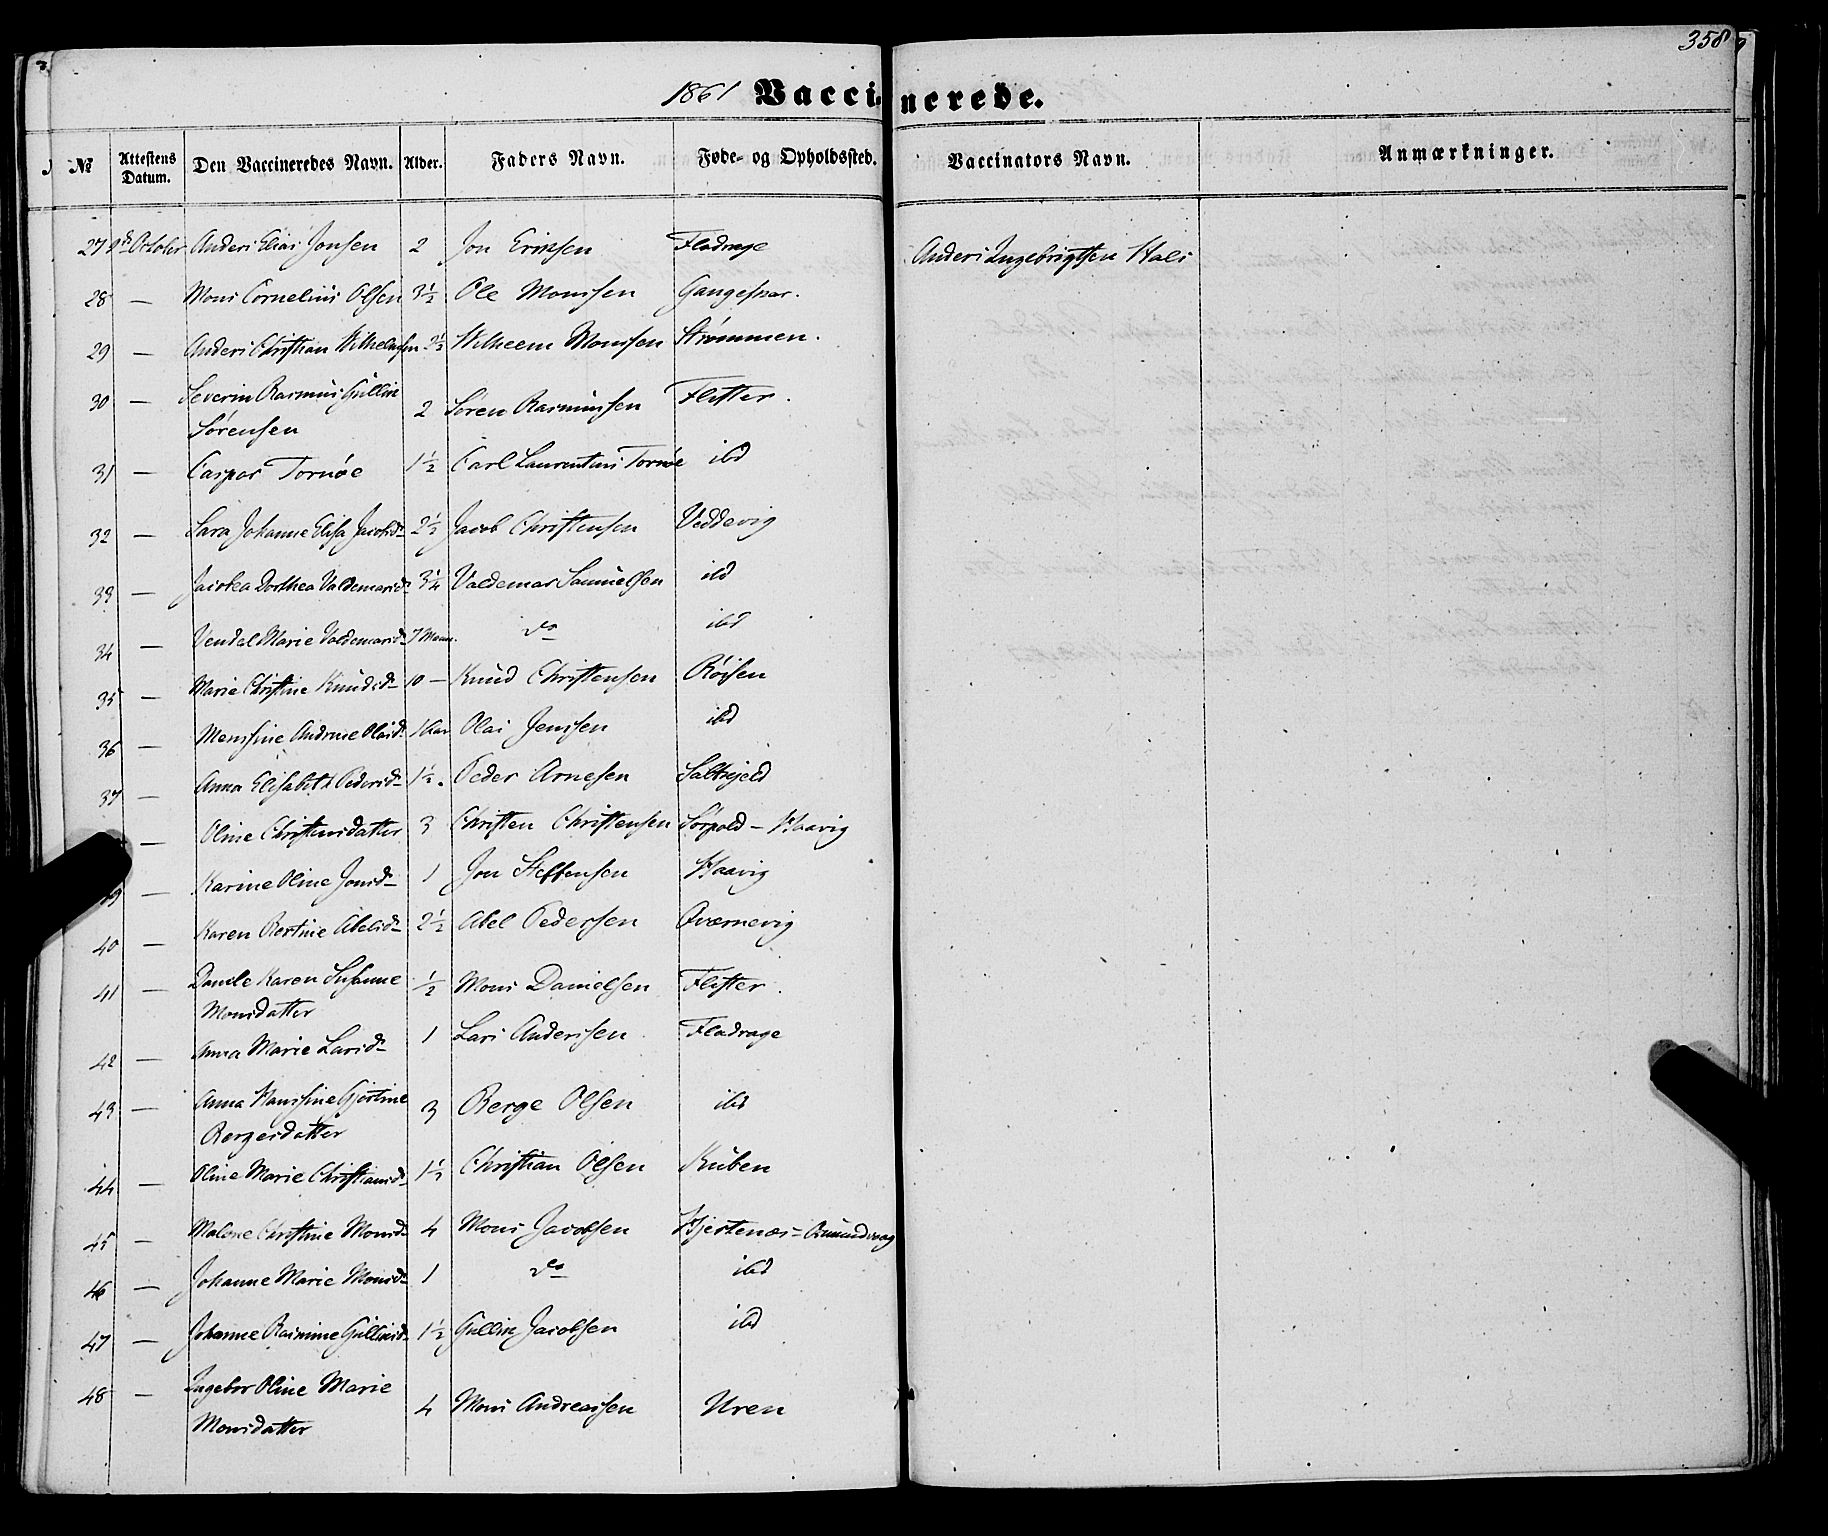 358
1861 Vaccinerede.
№ Attestens Datum. Den Vaccineredes Navn. Alder. Faders Navn. Føde- og Opholdssted. Vaccinators Navn. Anmærkninger.
27 October Anders Elias Jonsen 2 Jon Eriksen Fladrage Anders Ingebrigtsen Hals
28 — Mons Cornelius Olsen 3½ Ole Monssen Gangesnar.
29 — Anders Christian Wilhelmsen 2½ Wilhelm Monssen Strømmen.
30 — Severin Rasmus Gullik Sörensen 2 Sören Rasmussen Flister.
31 — Caspar Tornøe 1½ Carl Laurentius Tornøe ibd
32 — Sara Johanne Elisa Jacobsd. 2½ Jacob Christensen Veddevig
33 — Jacobea Dorthea Valdemarsd. 3¼ Valdemar Samuelsen ibd
34 — Vendel Marie Valdemarsd. 7 Maan. do ibd
35 — Marie Christine Knudsd. 10 — Knud Christensen Röisen
36 — Monsine Andrine Olaisd. 1 Aar Olai Jenssen ibd
37 — Anna Elisabeth Pedersd. 1½ Peder Arnesen Saltskjeld
— Oline Christensdatter 3 Christen Christensen Sörpold - Haavig
39 — Karine Oline Jonsd. 1 Jon Steffensen Haavig
40 — Karen Bertine Abelsd. 2½ Abel Pedersen Qværnevig
41 — Danile Karen Susanne Monsdatter ½ Mons Danielsen Flister.
42 — Anna Marie Larsd. 1 Lars Anderssen Fladrage
43 — Anna Hansine Gjertine Bergesdatter 3 Berge Olsen ibd
44 — Oline Marie Christiansd. 1½ Christian Olsen Kuben
45 — Malene Christine Monsd. 4 Mons Jacobsen Hjertenæs - Omundvaag
46 — Johanne Marie Monsd. 1 do ibd
47 — Johanne Rasmine Gulliksd. 1½ Gullik Jacobsen ibd
48 — Ingebor Oline Marie Monsdatter 4 Mons Andreassen Uren